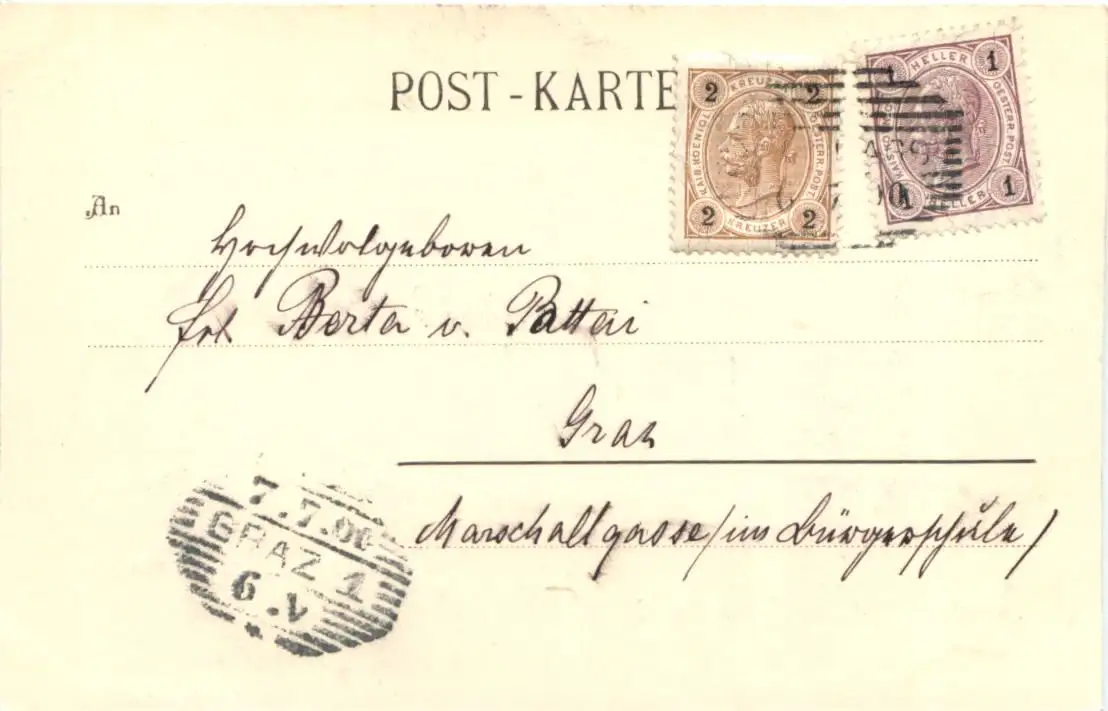 POST-KARTE
2 KREUZER 2
KAIS. KOENIGL. OESTERR. POST.
2 KREUZER 2
1 HELLER 1
KAIS. KÖNIGL. OESTERR. POST.
1 HELLER 1
An
Hochwolgeboren
Frl Berta v. Pattai
Graz
Marschallgasse /im Bürgerschule/
7.7.00
GRAZ 1
6.V